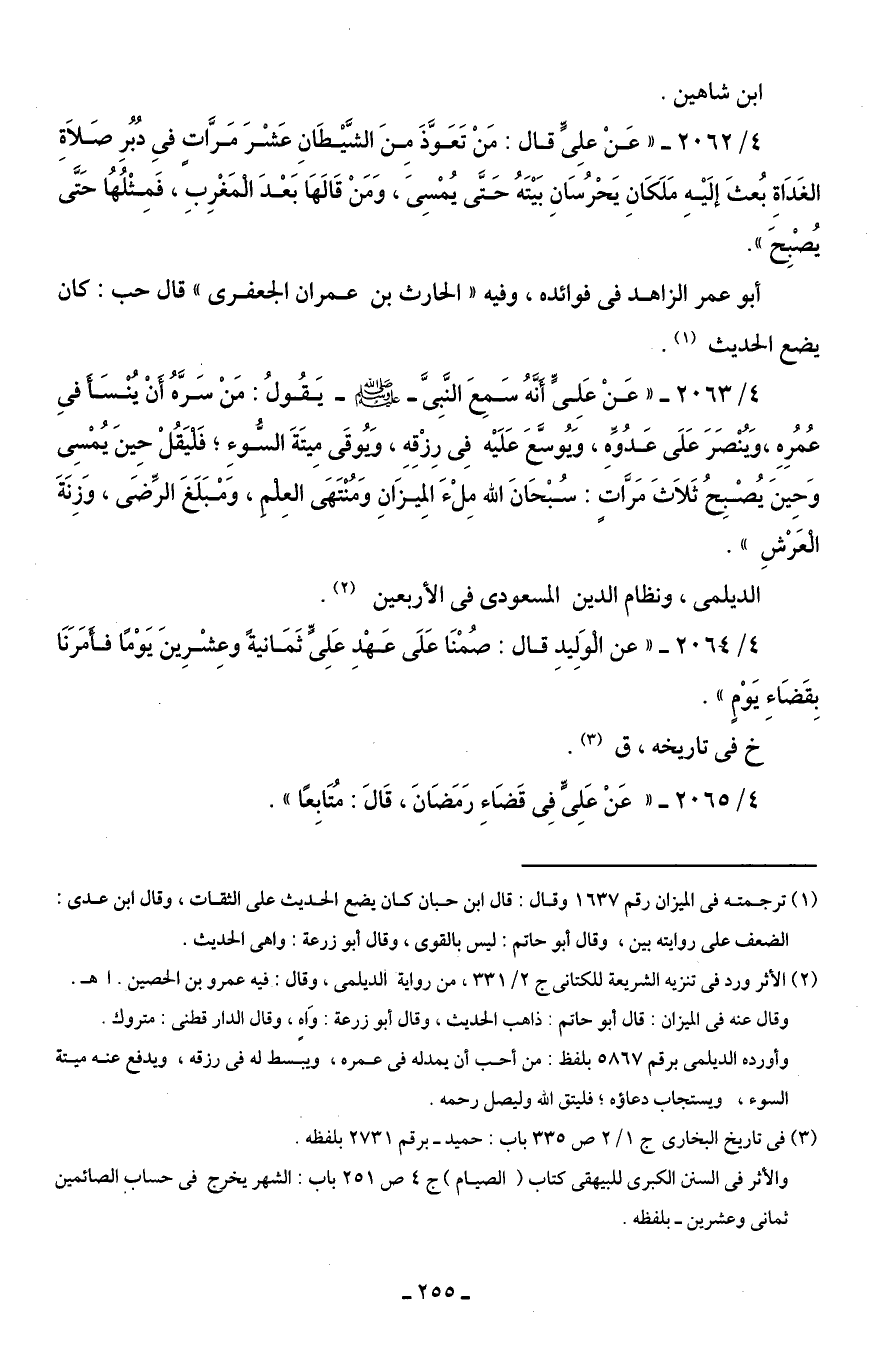 ابن شاهين .
٤/ ٢٠٦٢ ـ « عَنْ عَلِىٍّ قال : مَنْ تَعَوَّذَ مِنَ الشَّيْطَانِ عَشْرَ مَرَّاتٍ فِى دُبُرِ صَلاَةِ
الغَدَاةِ بُعثَ إِلَيْهِ مَلَكَانِ يَحْرُسَانِ بَيْتَهُ حَتَّى يُمْسِىَ ، وَمَنْ قَالَهَا بَعْدَ الْمَغْرِبِ ، فَمِثْلُهَا حَتَّى
يُصْبِحَ ».
أبو عمر الزاهد فى فوائده ، وفيه « الحارث بن عمران الجعفرى » قال حب : كان
يضع الحديث (١) .
٤/ ٢٠٦٣ ـ « عَنْ عَلِىٍّ أَنَّهُ سَمِعَ النَّبِىَّ ـ ﷺ ـ يَقُولُ : مَنْ سَرَّهُ أَنْ يُنْسَأَ فِى
عُمُرِهِ ،وَيُنْصَرَ عَلَى عَدُوِّهِ ، وَيُوسَّعَ عَلَيْهِ فِى رِزْقِهِ ، وَيُوقَى مِيتَةَ السُّوءِ ؛ فَلْيَقُلْ حِينَ يُمْسِى
وَحِينَ يُصْبِحُ ثَلاَثَ مَرَّاتٍ : سُبْحَانَ الله مِلْءَ المِيزَانِ وَمُنْتَهَى العِلْمِ ، وَمَبْلَغَ الرِّضَى ، وَزِنَةَ
الْعَرْشِ » .
الديلمى ، ونظام الدين المسعودى فى الأربعين (٢) .
٤/ ٢٠٦٤ ـ « عن الْوَلِيدِ قال : صُمْنَا عَلَى عَهْدِ عَلِىٍّ ثَمَانِيةً وعِشْرِينَ يَوْمًا فَأَمَرَنَا
بِقَضَاءِ يَوْمٍ » .
خ فى تاريخه ، ق (٣) .
٤/ ٢٠٦٥ ـ « عَنْ عَلِىٍّ فِى قَضَاءِ رَمَضَانَ ، قَالَ : مُتَابِعًا » .
(١) ترجمته فى الميزان رقم ١٦٣٧ وقال : قال ابن حبان كان يضع الحديث على الثقات ، وقال ابن عدى :
الضعف على روايته بين ، وقال أبو حاتم : ليس بالقوى ، وقال أبو زرعة : واهى الحديث .
(٢) الأثر ورد فى تنزيه الشريعة للكتانى ج ٢/ ٣٣١ ، من رواية الديلمى ، وقال : فيه عمرو بن الحصين . ا هـ .
وقال عنه فى الميزان : قال أبو حاتم : ذاهب الحديث ، وقال أبو زرعة : وَاهٍ ، وقال الدار قطنى : متروك .
وأورده الديلمى برقم ٥٨٦٧ بلفظ : من أحب أن يمدله فى عمره ، ويبسط له فى رزقه ، ويدفع عنه ميتة
السوء ، ويستجاب دعاؤه ؛ فليتق الله وليصل رحمه .
(٣) فى تاريخ البخارى ج ١/ ٢ ص ٣٣٥ باب : حميد ـ برقم ٢٧٣١ بلفظه .
والأثر فى السنن الكبرى للبيهقى كتاب ( الصيام ) ج ٤ ص ٢٥١ باب : الشهر يخرج فى حساب الصائمين
ثمانى وعشرين ـ بلفظه .
ـ ٢٥٥ ـ